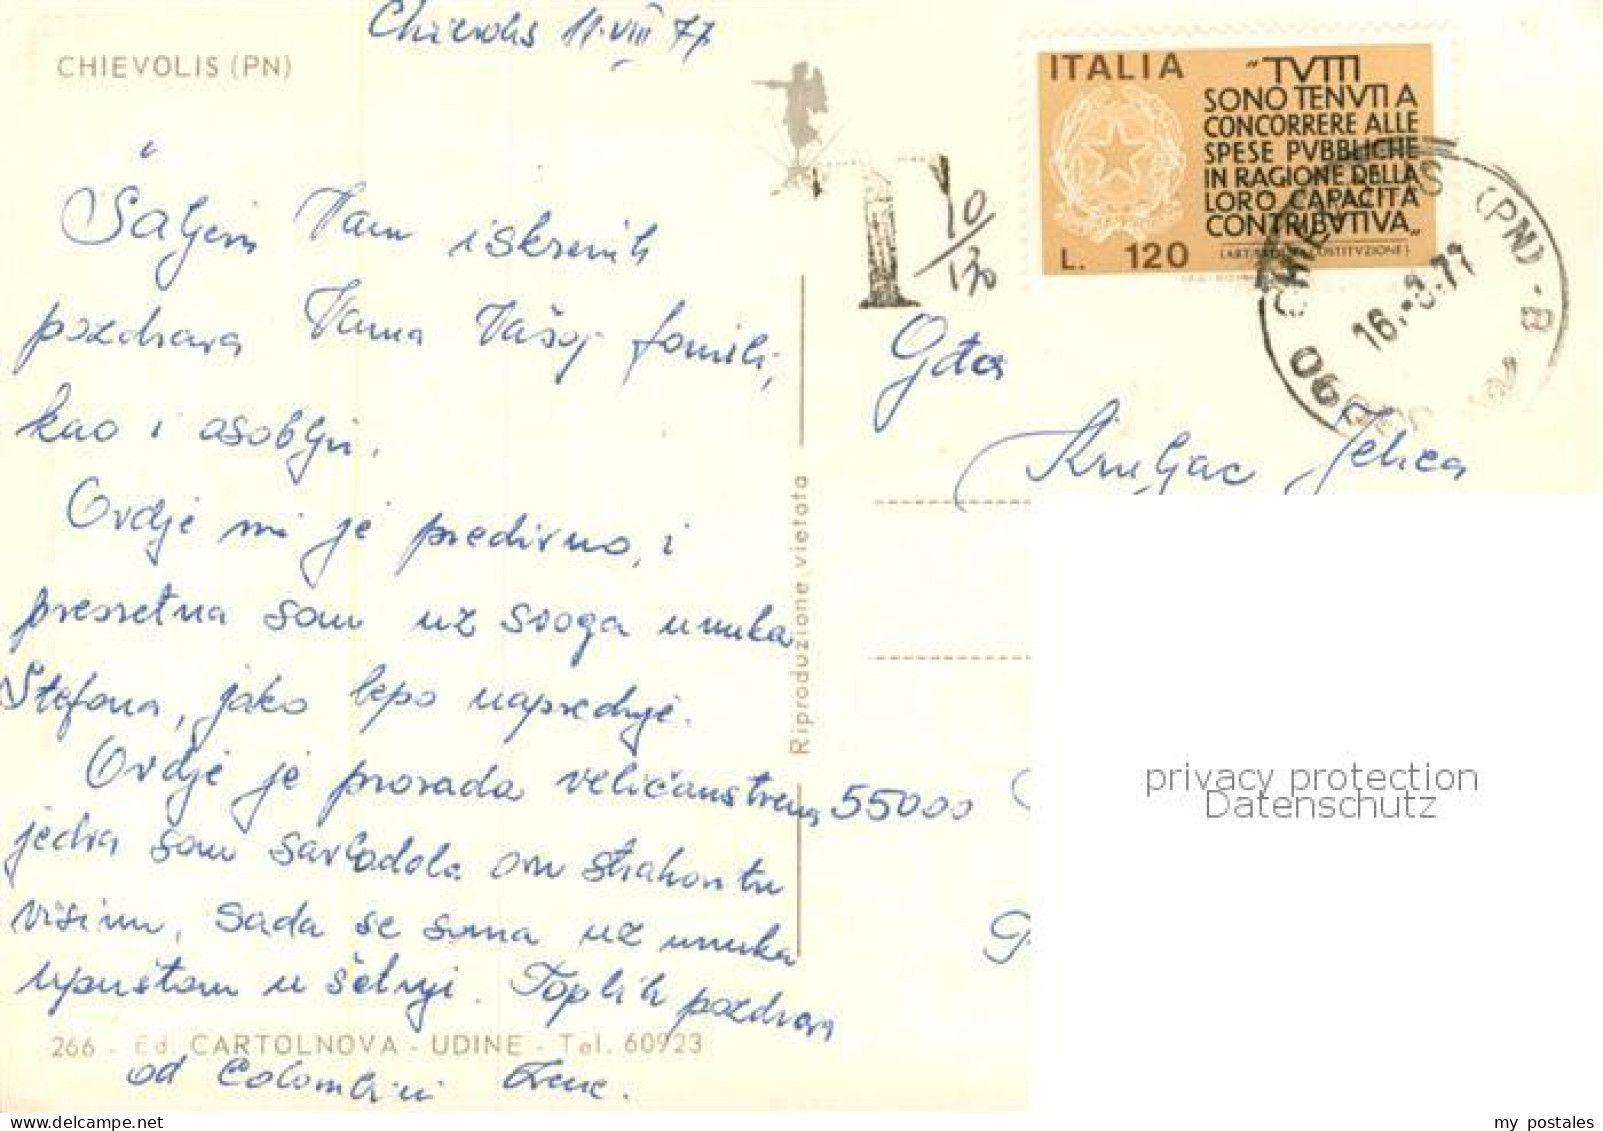 Chievolis 11. VIII 77.
CHIEVOLIS (PN)
Šaljem Vam iskrenih
pozdrava Vama Vašoj familij,
kao i osoblju.
Ovdje mi je predivno, i
presretna sam uz svoga unuka
Štefana, jako lepo napreduje.
Ovdje je priroda veličanstvena
jedva sam savladala ovu strahovitu
visinu, sada se sama uz unuka
upuštam u šetnji. Toplih pozdrava
od Colombini Irene.
266 - Ed. CARTOLNOVA - UDINE - Tel. 60923
Riproduzione vietata
T 10/170
ITALIA
"TVTTI
SONO TENVTI A
CONCORRERE ALLE
SPESE PVBBLICHE
IN RAGIONE DELLA
LORO CAPACITÀ
CONTRIBVTIVA„
L. 120
CHIEVOLIS (PN) - B
16.-8.77
Gđa
Kruljac Jelica
55000
G
privacy protection
Datenschutz
my postales